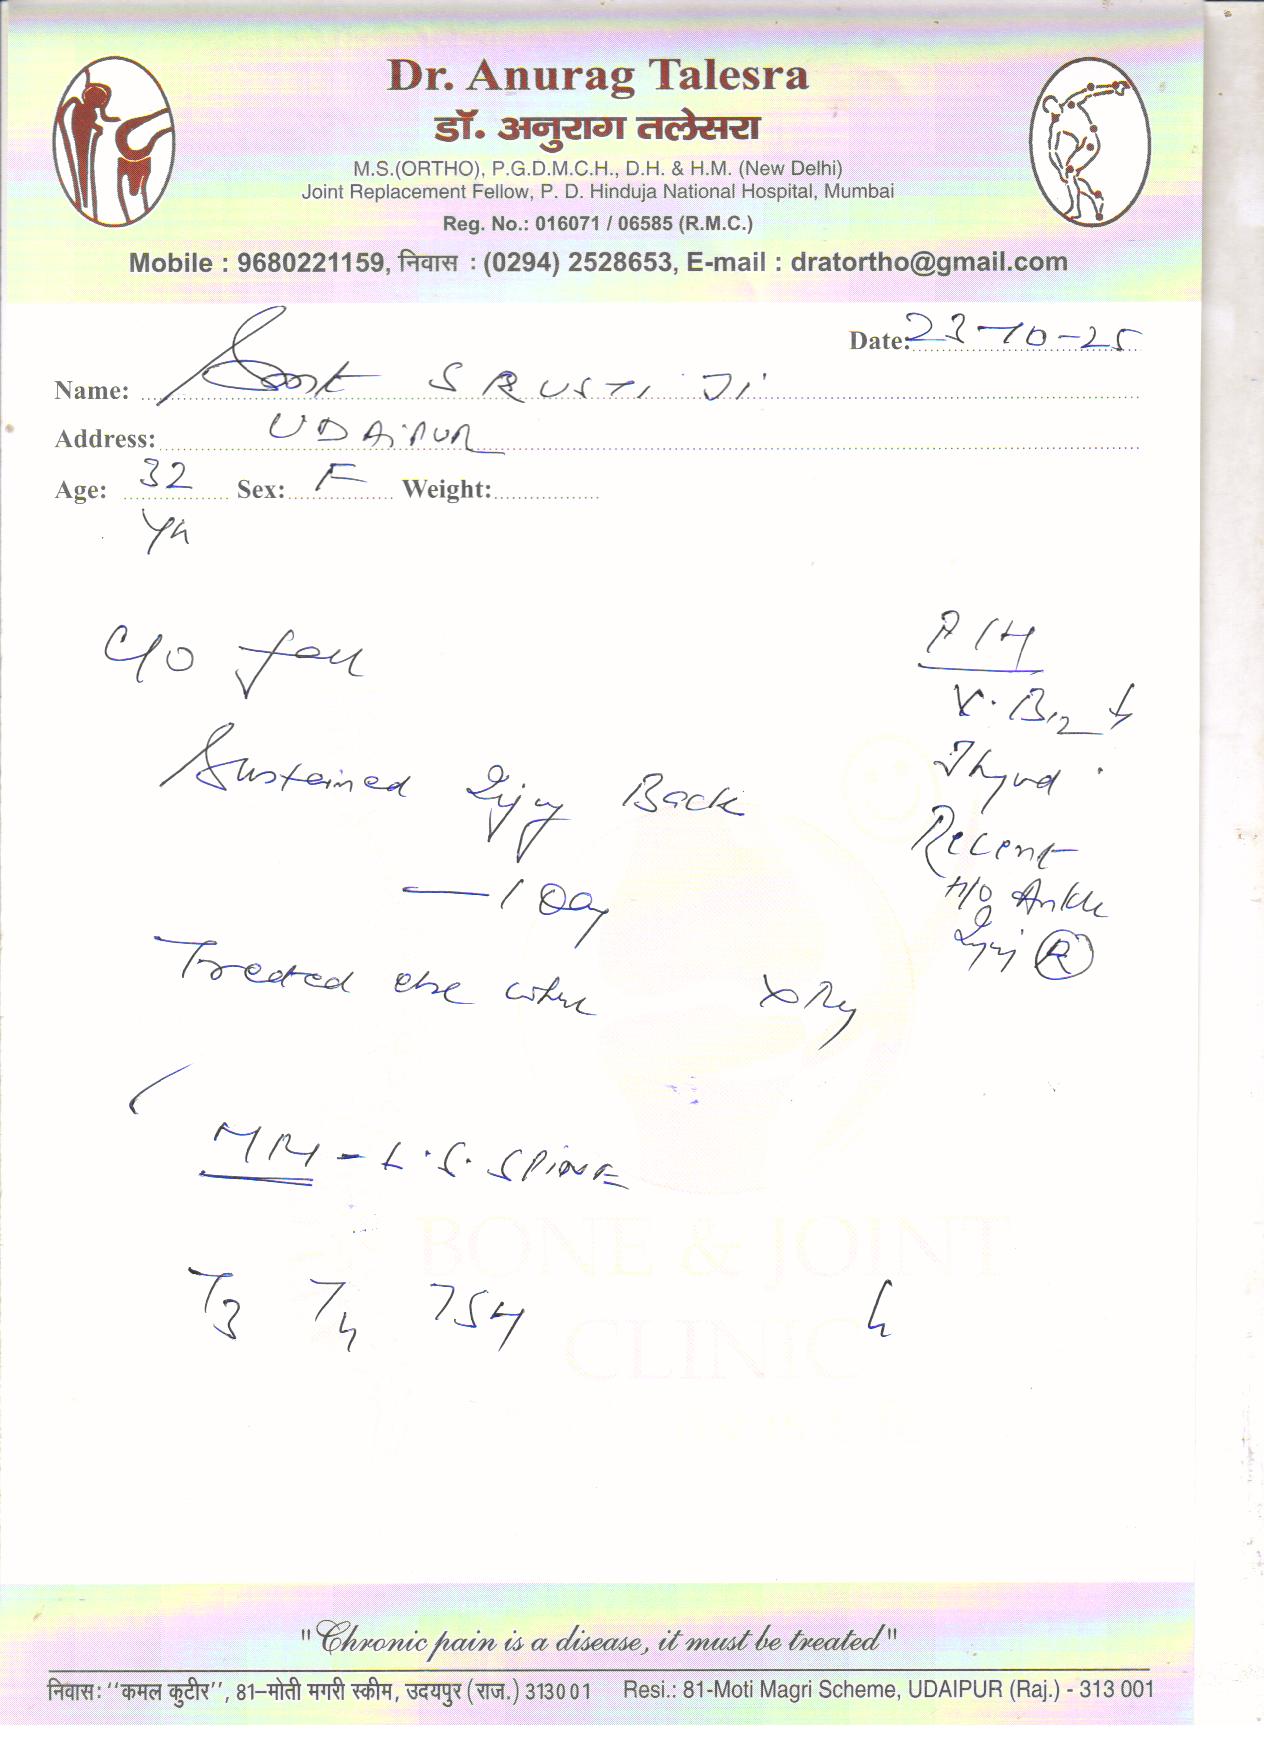 Dr. Anurag Talesra
डॉ. अनुराग तलेसरा
M.S.(ORTHO), P.G.D.M.C.H., D.H. & H.M. (New Delhi)
Joint Replacement Fellow, P. D. Hinduja National Hospital, Mumbai
Reg. No.: 016071 / 06585 (R.M.C.)
Mobile : 9680221159, निवास : (0294) 2528653, E-mail : dratortho@gmail.com
Date: 23-10-25
Name: SRUSTI JI
Address: UDAIPUR
Age: 32 Sex: F Weight:
Yr
C/O fall
Sustained Injury Back
— 1 Day
Treated else where X Ray
P/H
V. B12 ↓
Thyroid
Recent
H/O Ankle
Injury R
MRI - L.S. SPINE
T3 T4 TSH
BONE & JOINT
CLINIC
"Chronic pain is a disease, it must be treated"
निवास: ‘‘कमल कुटीर’’, 81–मोती मगरी स्कीम, उदयपुर (राज.) 313001 Resi.: 81-Moti Magri Scheme, UDAIPUR (Raj.) - 313 001